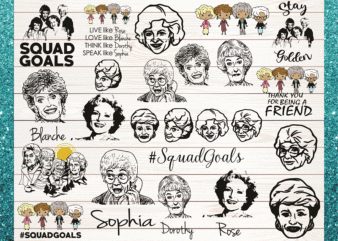 SQUAD
GOALS
LIVE like Rose
LOVE like Blanche
THINK like Dorothy
SPEAK like Sophia
Stay
Golden
THANK YOU
FOR BEING A
FRIEND
Blanche
#SquadGoals
#SQUADGOALS
Sophia
Dorothy
Rose